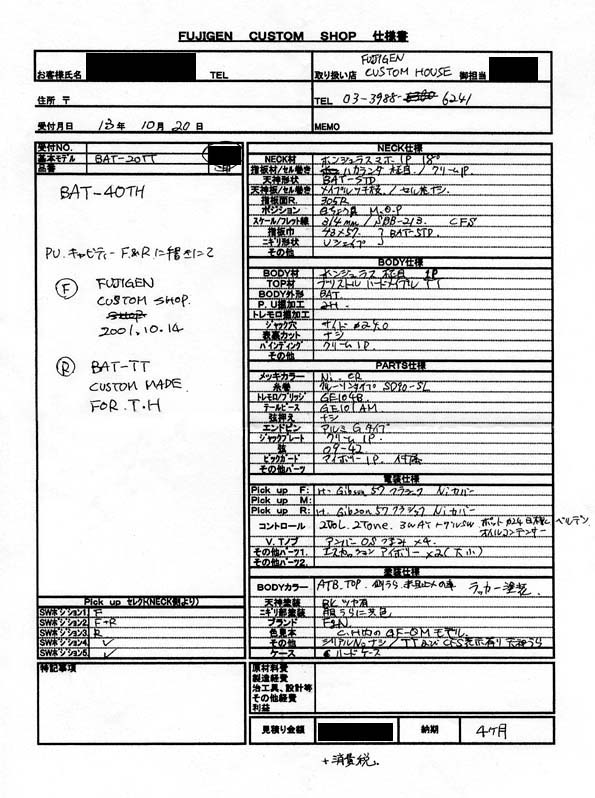 FUJIGEN CUSTOM SHOP 仕様書
お客様氏名 TEL 取り扱い店 FUJIGEN CUSTOM HOUSE 御担当
住所 〒 TEL 03-3988- 6241
受付月日 13年 10月 20日 MEMO
受付NO.
基本モデル BAT-20TT
品番
BAT-40TH
PU.キャビティー F.&R に書きにて
F FUJIGEN
CUSTOM SHOP.
2001.10.14
R BAT-TT
CUSTOM MADE
FOR.T.H
Pick up セレクト(NECK側より)
SWポジション1 F
SWポジション2 F+R
SWポジション3 R
SWポジション4
SWポジション5
特記事項
NECK仕様
NECK材 ホンジュラスマホ 1P 18°
指板材/セル巻き ハカランダ 柾目 / クリーム1P.
天神形状 BAT-STD
天神板/セル巻き メイプルツキ板 / セル
指板面R. 305R
ポジション M.O.P
スケール/フレット線 314mm / SBB-213 CFS
指板巾 43×57. BAT-STD.
ニギリ形状 Uシェイプ
その他
BODY仕様
BODY材 ホンジュラス 柾目 1P
TOP材 ブリストル ハードメイプル TT
BODY外形 BAT.
P.U掘加工 2H.
トレモロ掘加工
ジャック穴 サイド ø24.0
表裏カット ナシ
バインディング クリーム1P.
その他
PARTS仕様
メッキカラー Ni. CR
糸巻 クルーソンタイプ SD90-SL
トレモロ/ブリッジ GE104B.
テールピース GE101AM.
弦押え ナシ
エンドピン アルミ Gタイプ
ジャックプレート クリーム 1P.
弦 09-42
ピックガード アイボリー1P. 付属
その他パーツ
電装仕様
Pick up F: H. Gibson 57クラシック Niカバー
Pick up M:
Pick up R: H. Gibson 57クラシック Niカバー
コントロール 2Vol. 2Tone. 3WAYトグルSW ポット ø24日本製 ベルデン オイルコンデンサー
V.Tノブ アンバー OSつまみ ×4.
その他パーツ1. エスカッション アイボリー ×2(大小)
その他パーツ2.
塗装仕様
BODYカラー ATB.TOP. ラッカー塗装
天神塗装 BK ツヤ有
ニギリ部塗装
ブランド FGN.
色見本 C.H内の GF-OMモデル.
その他 シリアルNo.ナシ / TT及びCFS表示有り 天神うら
ケース ハードケース
原材料費
製造経費
治工具、設計等
その他経費
利益
見積り金額 納期 4ヶ月
+消費税.